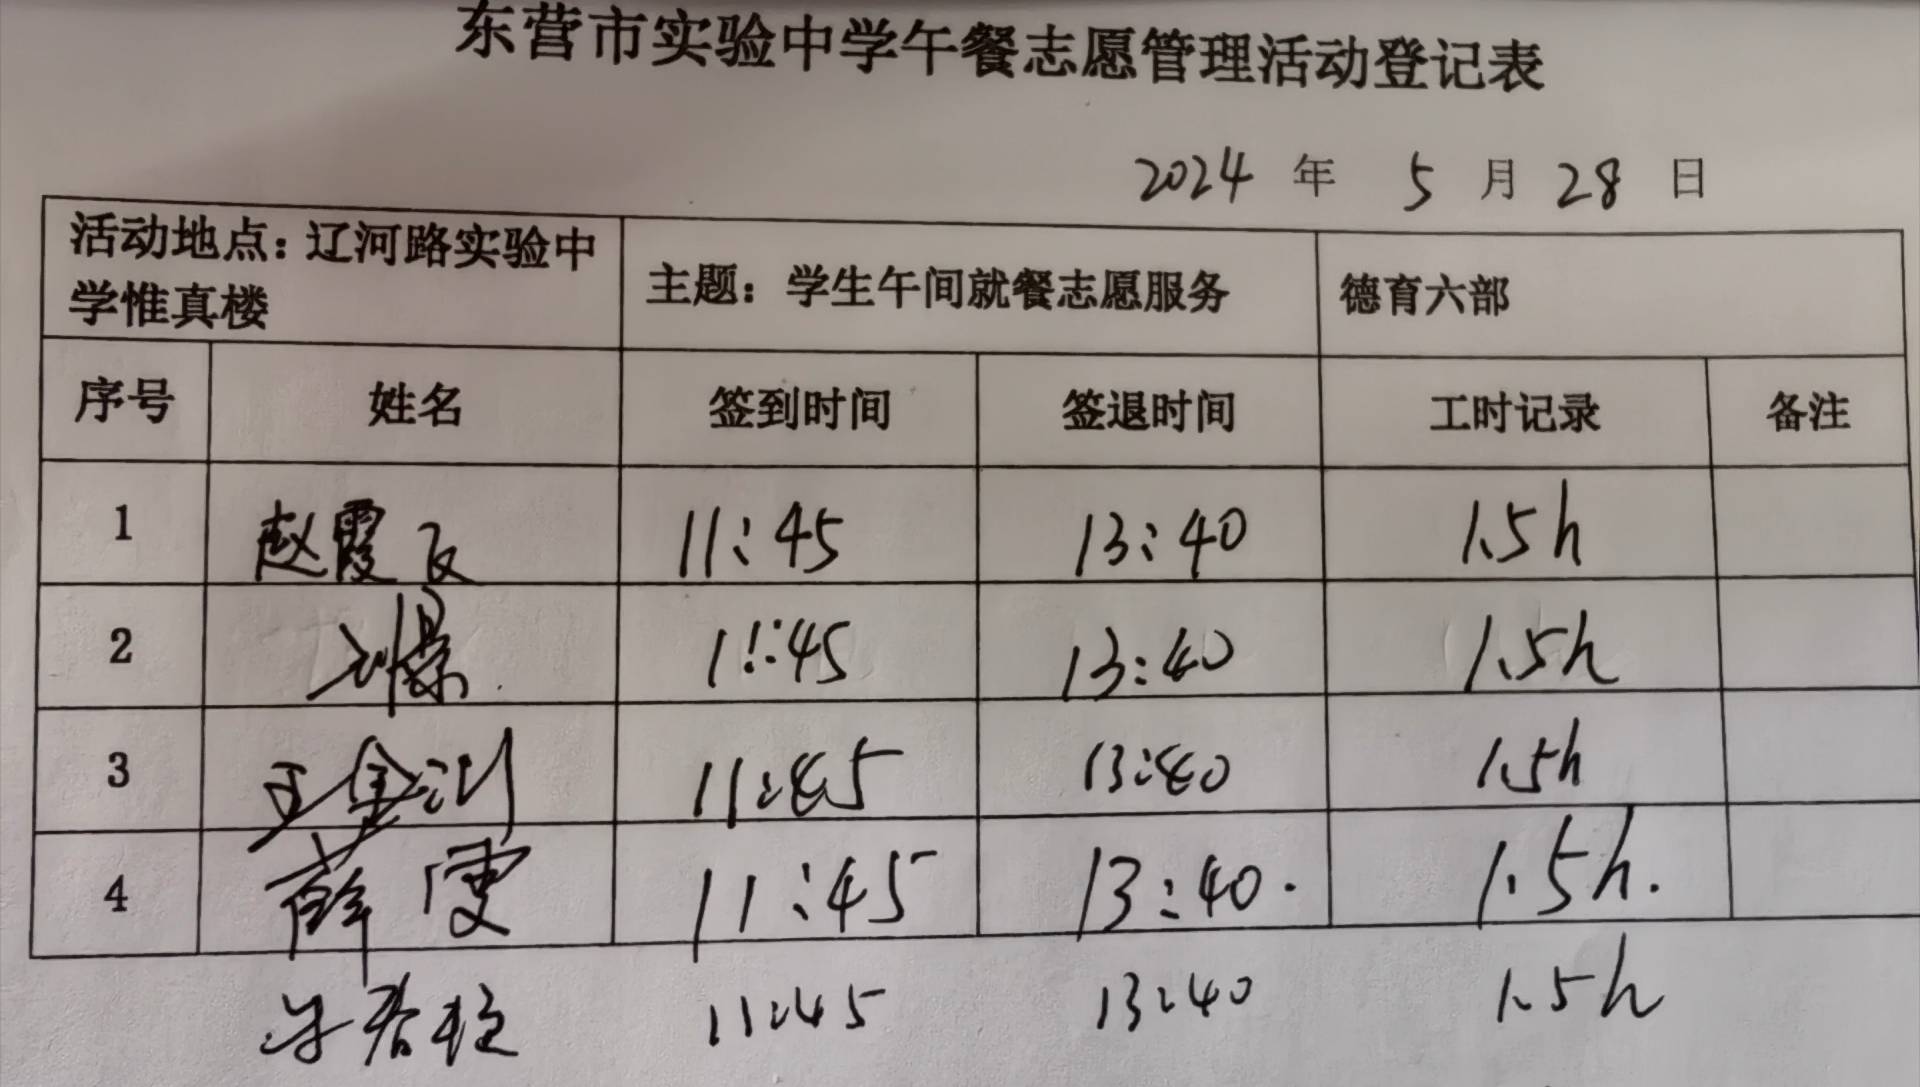 东营市实验中学午餐志愿管理活动登记表
2024 年 5 月 28 日
活动地点：辽河路实验中
学惟真楼
主题：学生午间就餐志愿服务
德育六部
序号 姓名 签到时间 签退时间 工时记录 备注
1 赵霞 11:45 13:40 1.5h
2 刘景 11:45 13:40 1.5h
3 王金 11:45 13:40 1.5h
4 薛 11:45 13:40. 1.5h.
11:45 13:40 1.5h